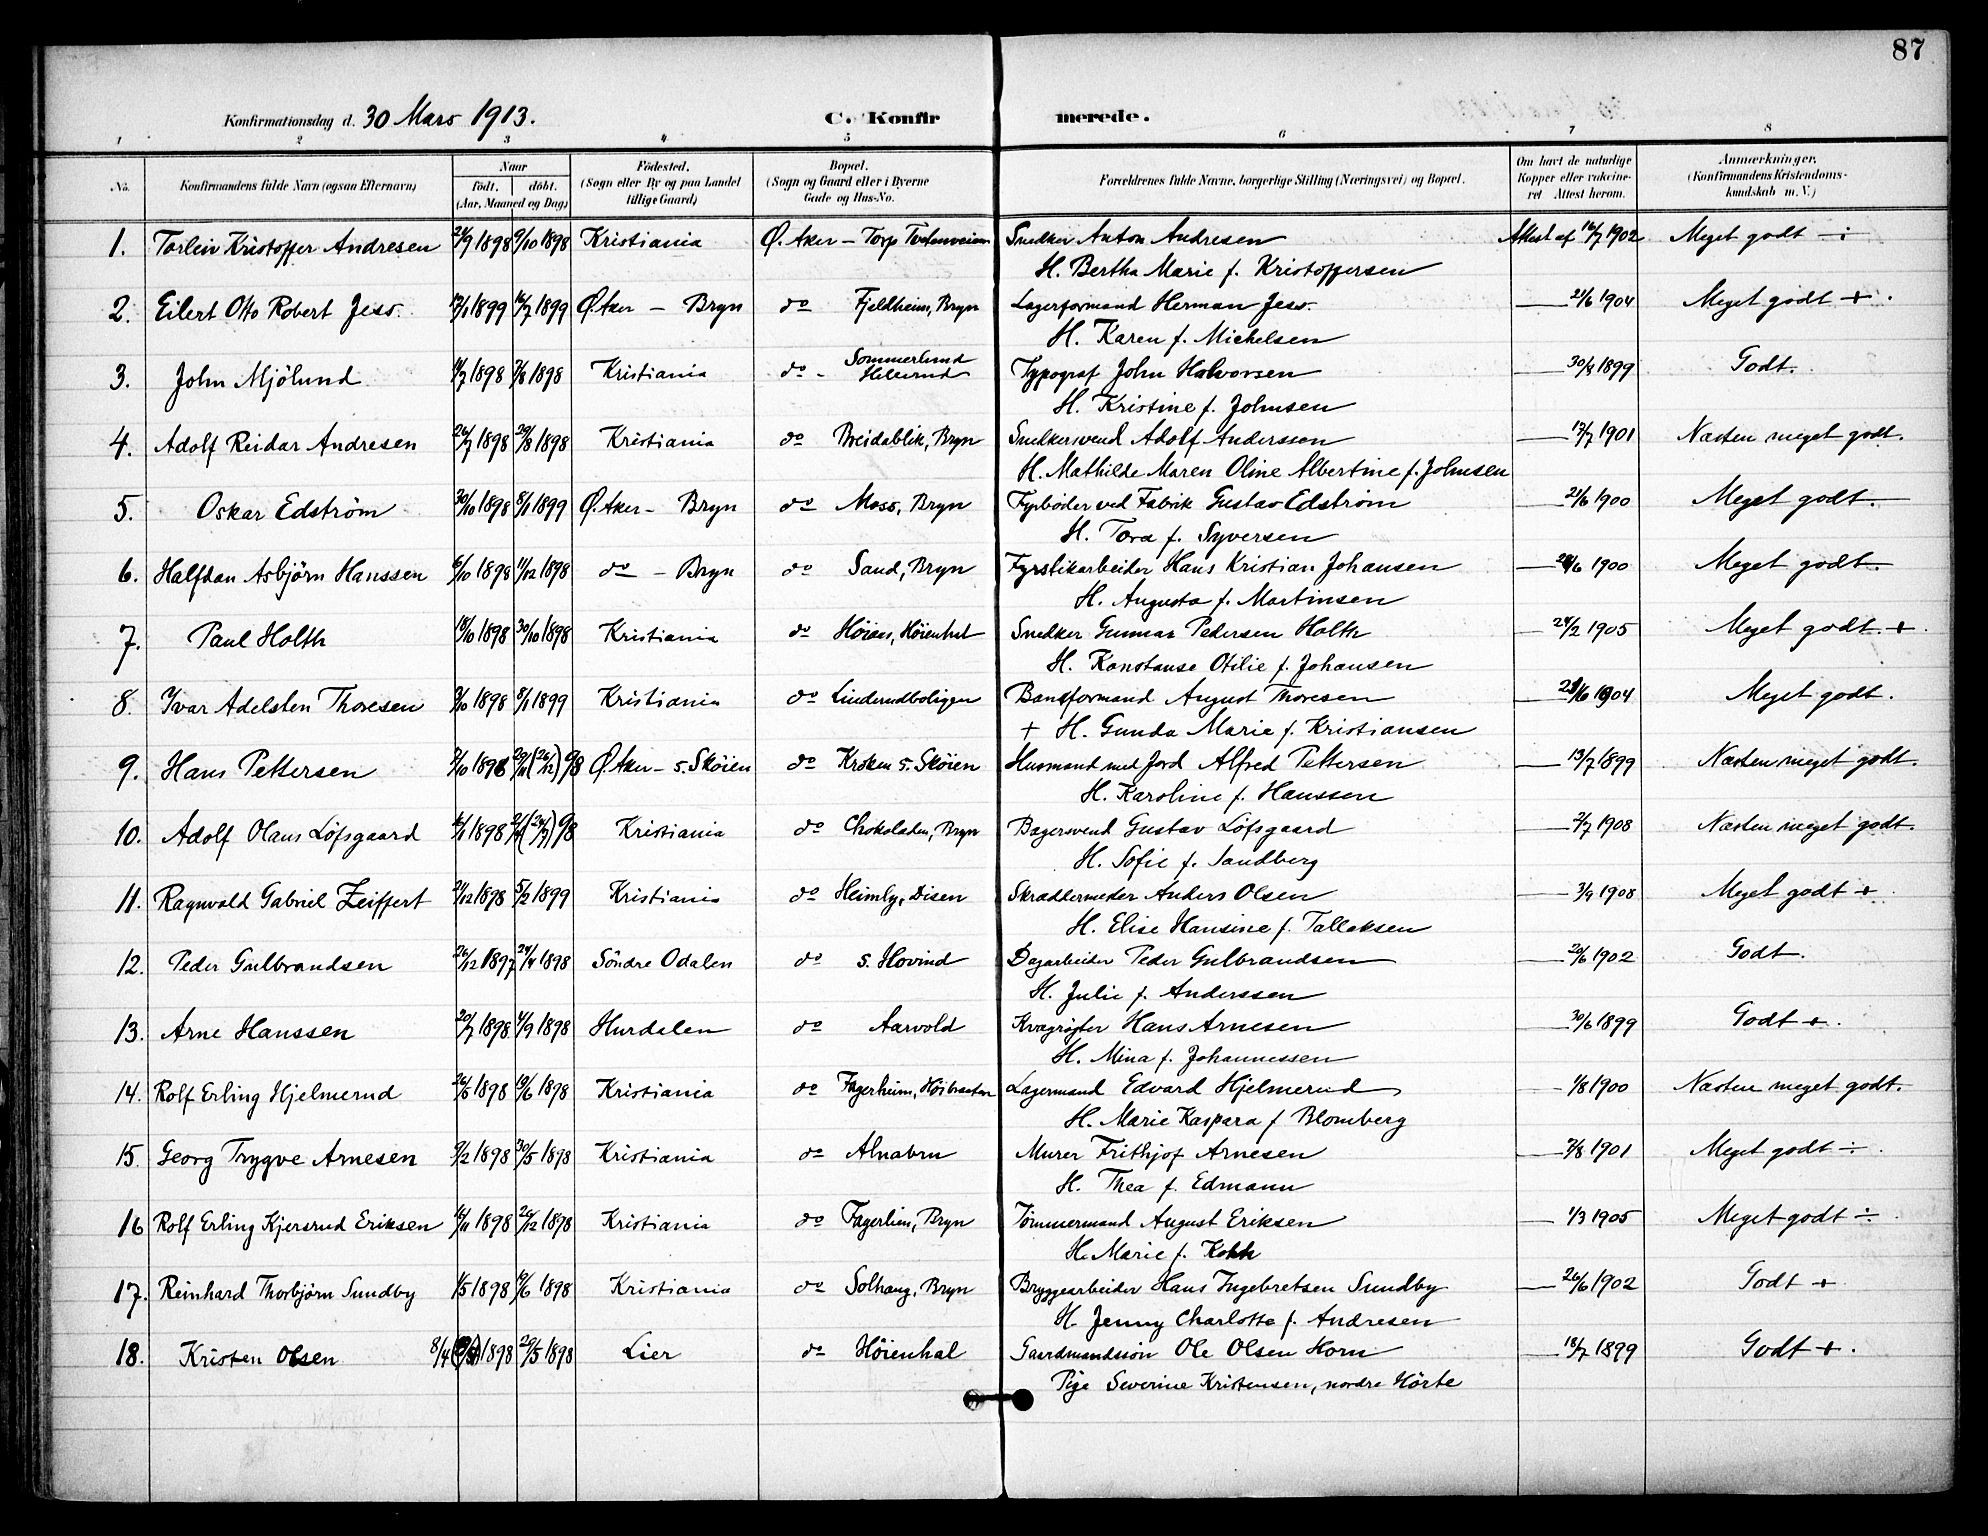 87
Konfirmationsdag d. 30 Mars 1913. C. Konfirmerede.
1 2 3 4 5 6 7 8
No. Konfirmandens fulde Navn (ogsaa Efternavn) Naar födt. döbt. (Aar, Maaned og Dag) Födested. (Sogn eller By og paa Landet tillige Gaard) Bopæl. (Sogn og Gaard eller i Byerne Gade og Hus-No. Forældrenes fulde Navne, borgerlige Stilling (Næringsvei) og Bopæl. Om havt de naturlige Kopper eller vakcineret Attest herom. Anmærkninger. (Konfirmandens Kristendomskundskab m. V.)
1. Torleiv Kristoffer Andresen 21/9 1898 9/10 1898 Kristiania Ø. Aker – Torp Tvetenveien Snedker Anton Andresen Attest af 16/7 1902 Meget godt ÷
H. Bertha Marie f. Kristoffersen
2. Eilert Otto Robert Jess. 1899 16/7 1899 Ø. Aker – Bryn do Fjeldheim, Bryn Lagerformand Herman Jess. — 21/6 1904 Meget godt +.
H. Karen f. Michelsen
3. John Mjölund 1898 1898 Kristiania do - Sommerlund Typograf John Halvorsen — 30/8 1899 Godt.
H. Kristine f. Johnsen
4. Adolf Reidar Andresen 26/7 1898 29/8 1898 Kristiania do Breidablik, Bryn Snedkersvend Adolf Anderssen — 13/7 1901 Næsten meget godt.
H. Mathilde Maren Oline Albertine f. Johnsen
5. Oskar Edström 30/10 1898 8/1 1899 Ø. Aker – Bryn do Moss, Bryn Fyrbøder ved Fabrik Gustav Edström — 21/6 1900 Meget godt.
H. Tora f. Syversen
6. Halfdan Asbjörn Hanssen 6/10 1898 11/12 1898 do – Bryn do Sand, Bryn Fyrstikarbeider Hans Kristian Johansen — 28/6 1900 Meget godt.
H. Augusta f. Martinsen
7. Paul Holth 18/10 1898 30/10 1898 Kristiania do Höiaas, Höienhal Snedker Gunnar Pedersen Holth — 24/2 1905 Meget godt. +.
H. Konstanse Otilie f. Johansen
8. Ivar Adelsten Thoresen 3/10 1898 8/1 1899 Kristiania do Linderudboligen Banformand August Thoresen — 1904 Meget godt.
+ H. Gunda Marie f. Kristiansen
9. Hans Pettersen 1898 Ø. Aker – S. Sköien do Kroken S. Sköien Husmand med Jord Alfred Pettersen — 13/7 1899 Næsten meget godt.
H. Karoline f. Hanssen
10. Adolf Olaus Löfsgaard 1898 Kristiania do Chokoladen, Bryn Bagersvend Gustav Löfsgaard — 2/7 1908 Næsten meget godt.
H. Sofie f. Sandberg
11. Ragnvald Gabriel Zeiffert 21/12 1898 5/2 1899 Kristiania do Heimly, Disen Skræddermester Anders Olsen — 3/9 1908 Meget godt +.
H. Elise Hansine f. Tallaksen
12. Peder Gulbrandsen 26/12 1897 24/4 1898 Söndre Odalen do S. Hovind Dagarbeider Peder Gulbrandsen — 20/6 1902 Godt.
H. Julie f. Anderssen
13. Arne Hanssen 20/7 1898 4/9 1898 Hurdalen do Aarvold Kvægrögter Hans Arnesen — 30/6 1899 Godt +.
H. Mina f. Johannessen
14. Rolf Erling Hjelmerud 26/5 1898 19/6 1898 Kristiania do Fagerheim, Höibraaten Lagermand Edvard Hjelmerud — 1/8 1900 Næsten meget godt.
H. Marie Kaspara f Blomberg
15. Georg Trygve Arnesen 9/2 1898 30/5 1898 Kristiania do Alnabru Murer Frithjof Arnesen — 7/8 1901 Meget godt ÷.
H. Thea f. Edmann
16 Rolf Erling Kjersrud Eriksen 1898 26/12 1898 Kristiania do Fagerlien, Bryn Tömmermand August Eriksen — 1/3 1905 Meget godt ÷.
H. Marie f. Kohh
17. Reinhard Thorbjörn Sundby 1/5 1898 19/6 1898 Kristiania do Solhaug, Bryn Bryggearbeider Hans Ingebretsen Sundby — 26/6 1902 Godt +
H. Jenny Charlotte f. Andresen
18. Kristen Olsen 8/4 1898 29/5 1898 Lier do Höienhal Gaardmandssön Ole Olsen Horn — 18/7 1899 Godt +.
Pige Severine Kristensen, nordre Hörte